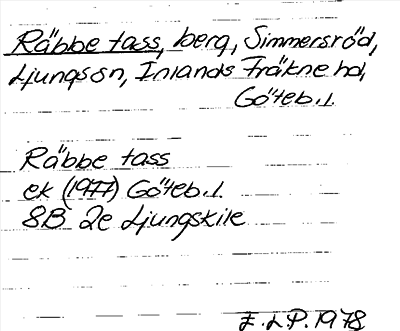 Räbbe tass, berg, Simmersröd,
Ljungs sn, Inlands Fräkne hd,
Göteb.l.
Räbbe tass
ek (1977) Göteb.l.
8B 2e Ljungskile
E.L.P. 1978